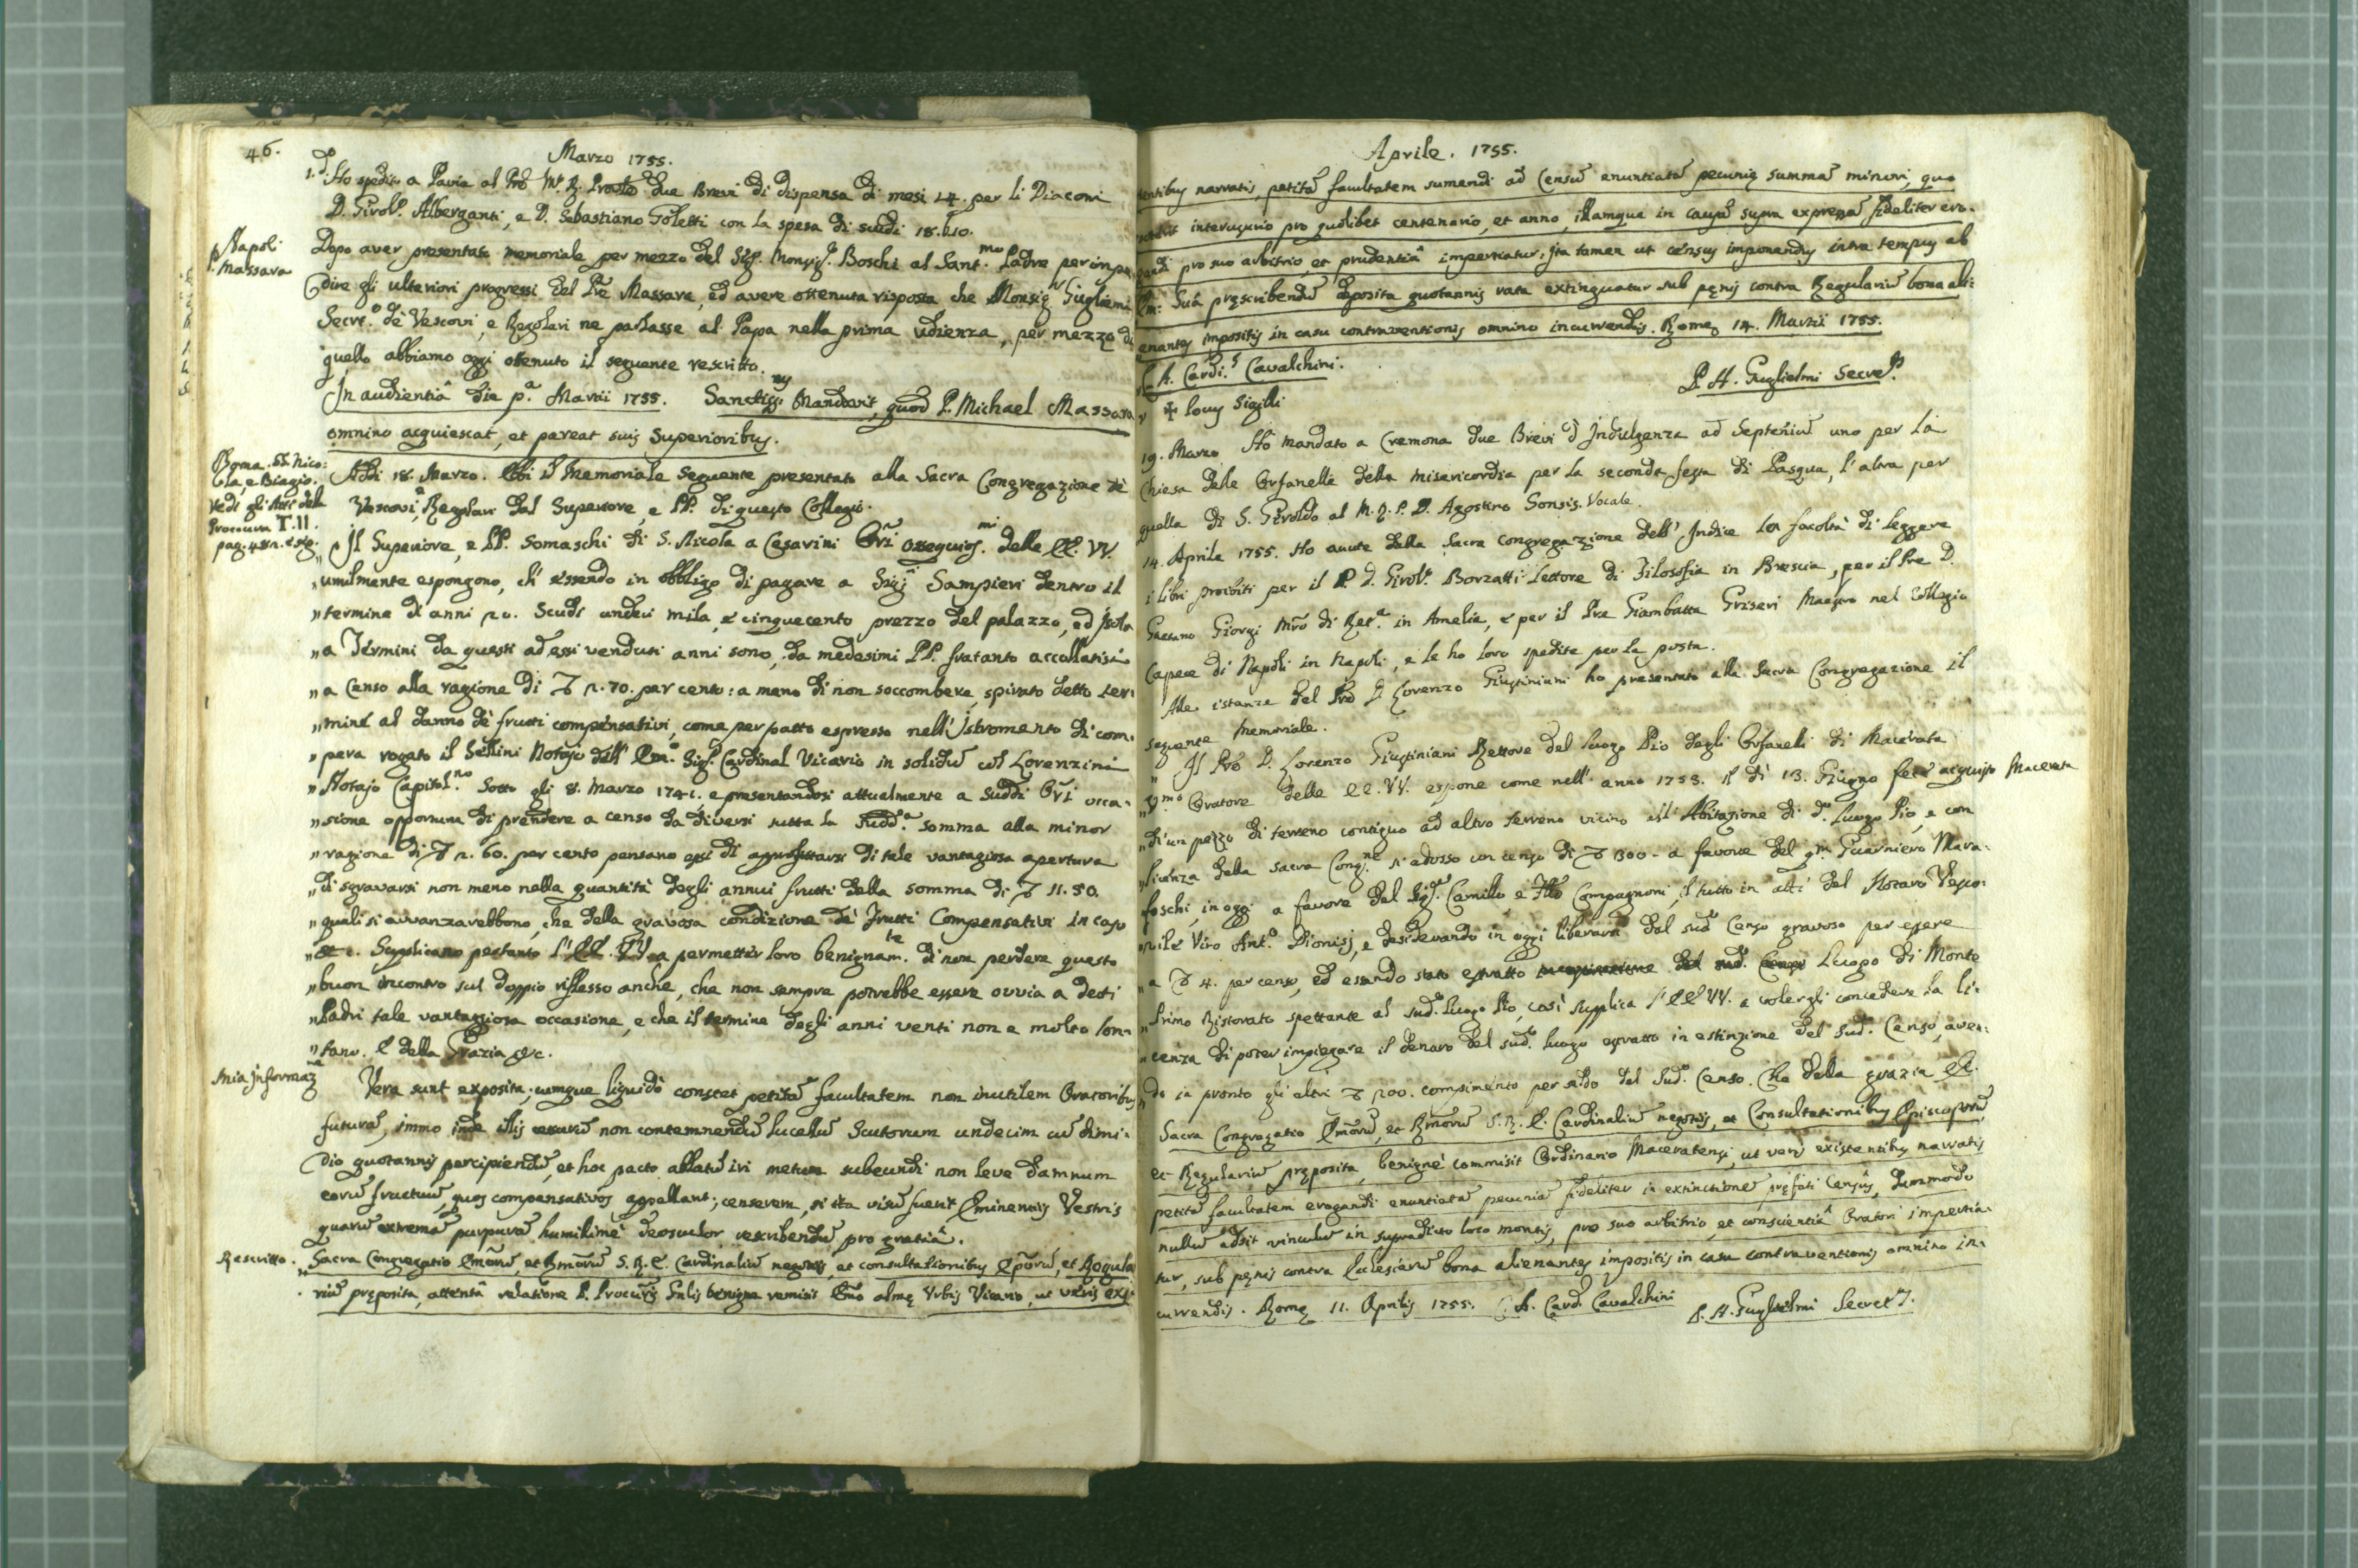 46.
Marzo 1755.
1.do Ho spedito a Pavia al Pre due Brevi di dispensa di mesi 14. per li Diaconi
D. Girol.o Alberganti, e D. Sebastiano Goletti con la spesa di scudi 18. b. 10.
p. Napoli
Massara
Dopo aver presentato memoriale per mezzo del Sig.r Monsig.r Boschi al Sant.mo Padre per impe
dire gli ulteriori progressi del Pre Massara, ed avere ottenuta risposta che Monsig.r Gugliemi
Secret.o de' Vescovi, e Regolari ne parlasse al Papa nella prima udienza, per mezzo di
quello abbiamo oggi ottenuto il seguente rescritto.
In audientiâ die p.a Martii 1755. Sanctiss.us Mandavit, quod P. Michael Massara
omnino acquiescat, et pareat suis Superioribus.
Roma. SS. Nico:
la, e Biagio.
Vedi gli Atti della
Procura T. II.
pag. 48
Addi 18. Marzo. Ebbi il Memoriale seguente presentato alla Sacra Congregazione de'
Vescovi, e Regolari dal Superiore, e PP. di questo Collegio.
„ Il Superiore, e PP. Somaschi di S. Nicola a Cesarini Ori ossequios.mi delle EE. VV.
„ umilmente espongono, ch' essendo in obbligo di pagare a Sig.i Sampieri dentro il
„ termine di anni 20. Scudi undeci mila, e cinquecento prezzo del palazzo, ed Isola
„ a Termini da questi ad essi venduti anni sono, da medesimi PP. fratanto accollatisi
„ a Censo alla ragione di 2. 70. per cento: a meno di non soccombere, spirato detto ter:
„ mine al danno de' frutti compensativi, come per patto espresso nell' Istromento di com:
„ pera rogato il Sellini Notajo dell' Em.o Sig.r Cardinal Vicario in solidum col Lorenzini
„ Notajo Capitol.no Sotto gli 8. Marzo 1741. e presentandosi attualmente a Suddi Ori occa:
„ sione opportuna di prendere a censo da diversi tutta la Sudd.a somma alla minor
„ ragione di 2. 60. per cento pensano essi di approfittarsi di tale vantagiosa apertura
„ di sgravarsi non meno nella quantità degli annui frutti della somma di 11. 50.
„ quali si avvanzarebbono, che della gravosa condizione de' Frutti Compensativi in caso
„ &c. Supplicano pertanto l' EE. VV. a permetter loro benignam.te di non perdere questo
„ buon incontro sul doppio riflesso anche, che non sempre potrebbe essere ovvia a detti
„ Padri tale vantaggiosa occasione, e che il termine degli anni venti non è molto lon:
„ tano. E della Grazia &c.
Mia informaz.ne
Vera sunt exposita; cumque liquidò constet petitã facultatem non inutilem Oratoribus
futurã, immo inde illis non contemnendũ lucellũ Scutorum undecim cũ dimi:
dio quotannis percipiendũ, et hoc pacto ablatũ iri metum subeundi non leve damnum
eorũ fructuũ, quos compensativos appellant; censerem, si ita visũ fuerit Eminentiis Vestris
quarũ extremã purpurã humilimè deosculor rescribendũ pro gratiâ.
Rescritto.
Sacra Congregatio Emorũ, et Rmorũ S. R. E. Cardinaliũ negotiis, et consultationibus Eporũ, et Regula
riũ preposita, attentâ relatione P. Procuris Gnlis benigne remisit Emo alme Urbis Vicario, ut veris exi:
Aprile. 1755.
stentibus narratis, petitã facultatem sumendi ad Censũ enuntiatã pecunię summã minori, quo
interusurio pro quolibet centenario, et anno, illamque in causã supra expressã fideliter ero:
gandi pro suo arbitrio, et prudentiâ impertiatur, Ita tamen ut census imponendus intra tempus ab
Em: Suâ pręscribendũ deposita quotannis rata extinguatur sub pęnis contra Regulariũ bona ali:
enantes impositis in casu contraventionis omnino incurrendis. Romę 14. Martii 1755.
C. A. Cardi.s Cavalchini.
P. A. Guglielmi Secre.s
✠ Locus Sigilli
19. Marzo Ho mandato a Cremona due Brevi d' Indulgenza ad Septeniũ uno per la
Chiesa delle Orfanelle della misericordia per la seconda festa di Pasqua, l' altra per
quella di S. Geroldo al M. R. P. D. Agostino Sonsis Vocale.
14. Aprile 1755. Ho avute dalla Sacra Congregazione dell' Indice la facoltà di leggere
i libri proibiti per il P. D. Girol.o Borzatti Lettore di Filosofia in Brescia, per il Pre D.
Gaetano Giorgi Mro di Ret.a in Amelia, e per il Pre Giambatta Griseri Maestro nel Collegio
Capece di Napoli in Napoli, e le ho loro spedite per la posta.
Alle istanze del Pre D. Lorenzo Giustiniani ho presentato alla Sacra Congregazione il
seguente Memoriale.
„ Il Pre D. Lorenzo Giustiniani Rettore del luogo Pio degli Orfanelli di Macerata
Macerata
„ Oratore delle EE. VV. espone come nell' anno 1753. il dì 13. Giugno fece acquisto
„ di un pezzo di terreno contiguo ad altro terreno vicino all' Abitazione di d.o Luogo Pio, e con
„ licenza della Sacra Cong.ne si adossò un censo di 1300 - a favore del qm Guarniero Mara:
foschi, in oggi a favore del Sig.r Camillo, e Compagnoni, il tutto in atti del Notaro Vesco:
„ vile Viro Ant.o Dionisj, e desiderando in oggi liberarsi dal sud.o Censo gravoso per essere
„ a 4. per censo, ed essendo stato estratto Luogo di Monte
„ Primo Ristorato spettante al sud.o Luogo Pio, così supplica l' EE VV. a volergli concedere la li:
„ cenza di poter impiegare il denaro del sud.o luogo estratto in estinzione del sud.o Censo, aven:
„ do in pronto gli altri 200. compimento per saldo del sud.o Censo. Che della grazia &c.
Sacra Congregatio Emorũ, et Rmorũ S. R. E. Cardinaliũ negotiis, et Consultationibus Episcoporũ,
et Regulariũ pręposita, benignè commisit Ordinario Maceratensi, ut veris existentibus narratis
petitã facultatem erogandi enuntiatã pecuniã fideliter in extinctionẽ pręfati Censûs, dummodo
nullũ adsit vinculũ in supradicto loco montis, pro suo arbitrio, et conscientiâ Oratori impertia:
tur, sub pęnis contra Ecclesiarũ bona alienantes impositis in casu contraventionis omnino in:
currendis. Romę 11. Aprilis 1755. C. A. Card. Cavalchini P. A. Guglielmi Secret.s